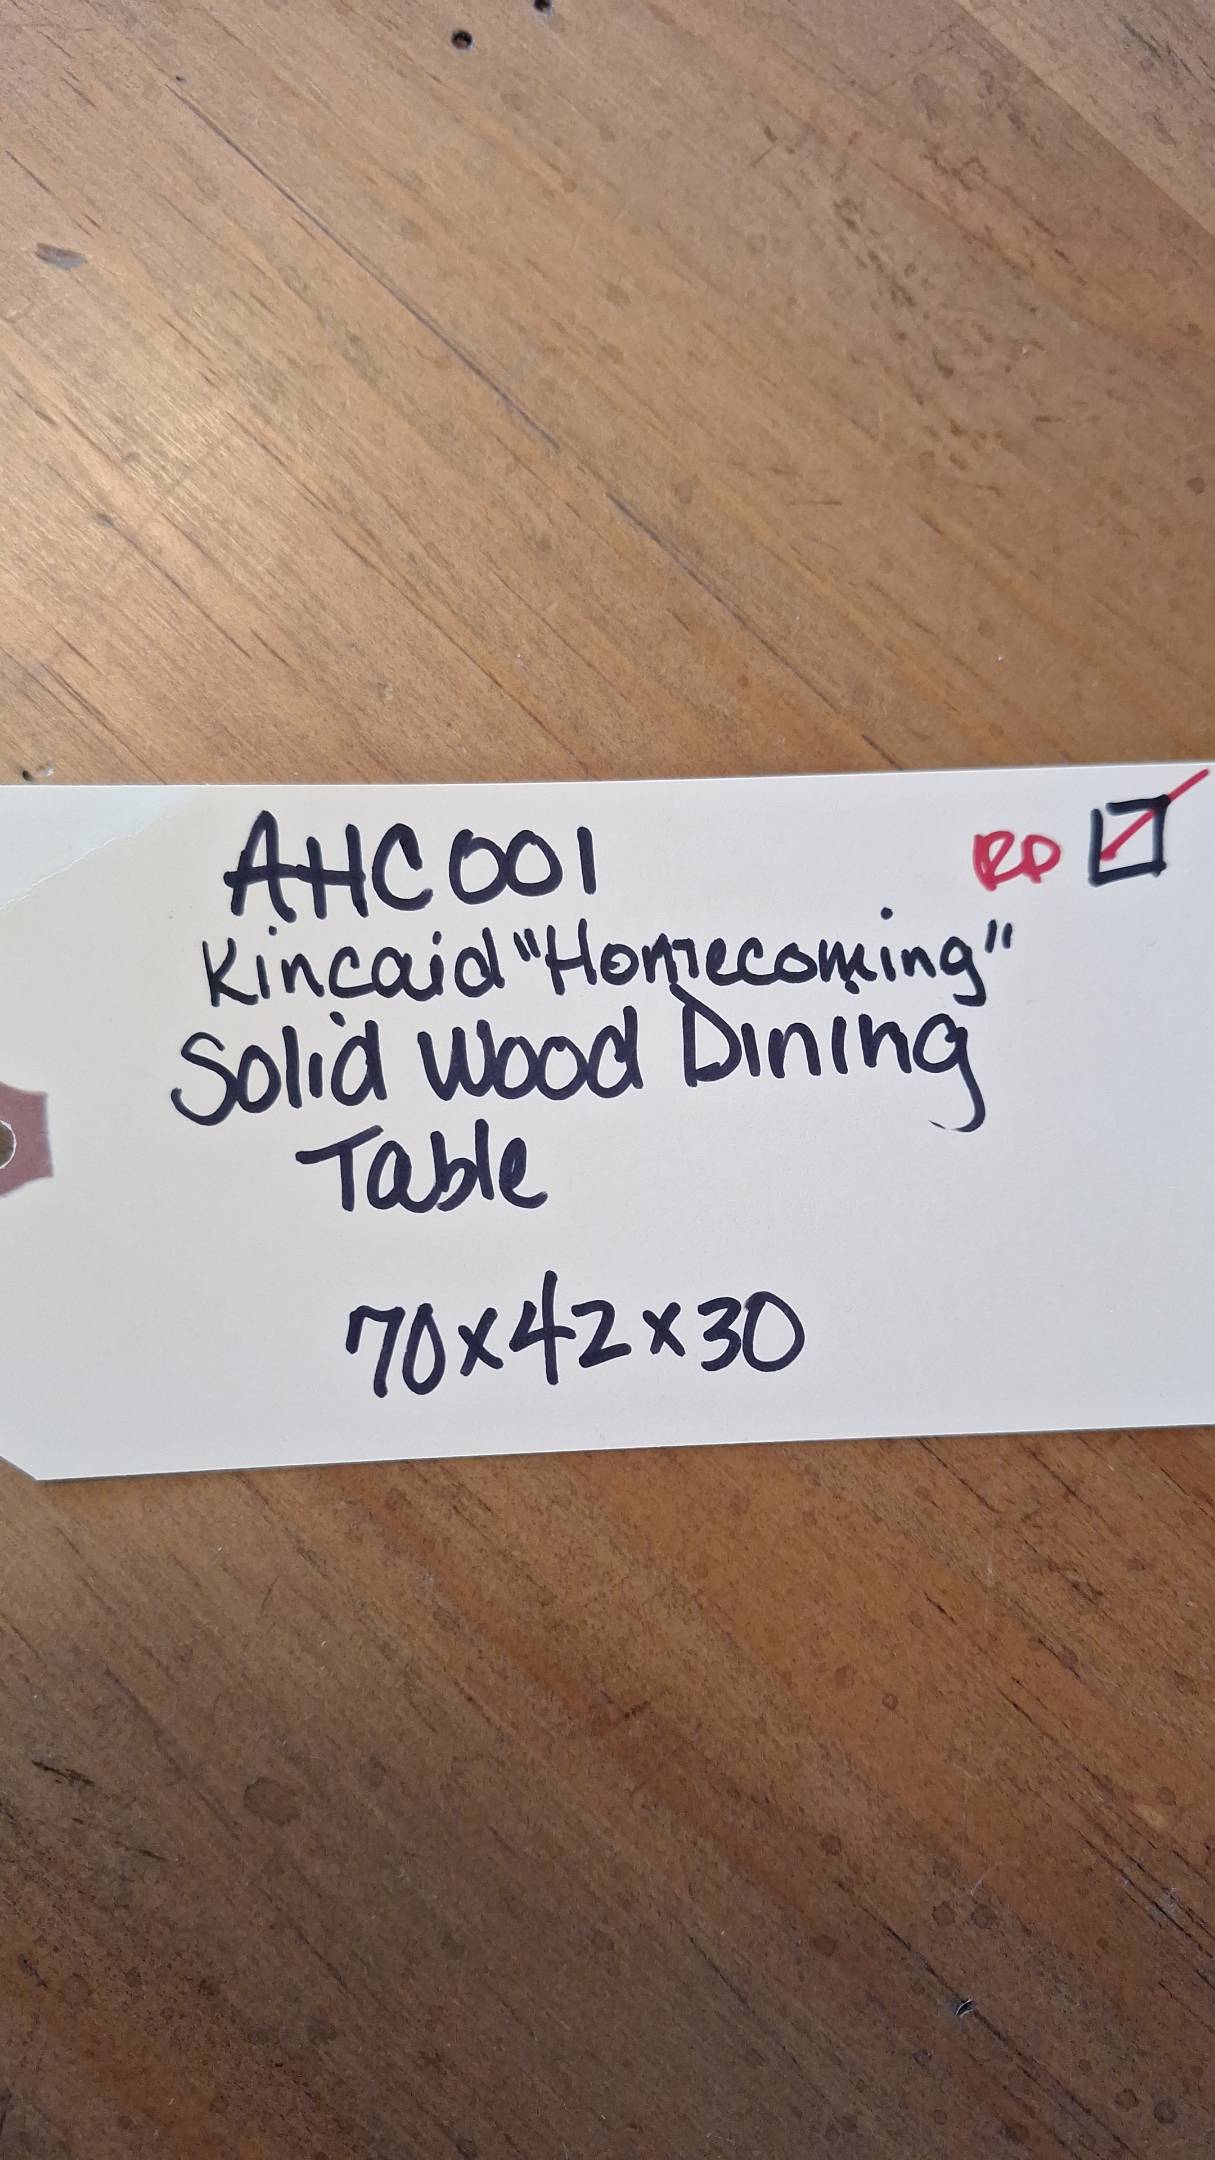 AHC001 RD
Kincaid "Homecoming"
Solid Wood Dining
Table
70x42x30